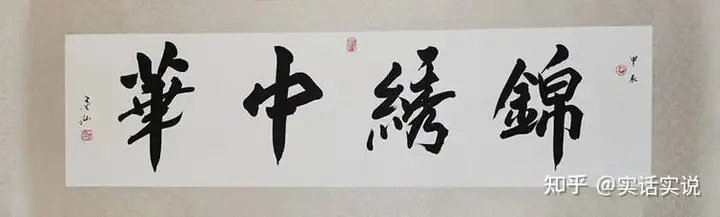 甲辰
錦繡中華
知乎 @实话实说